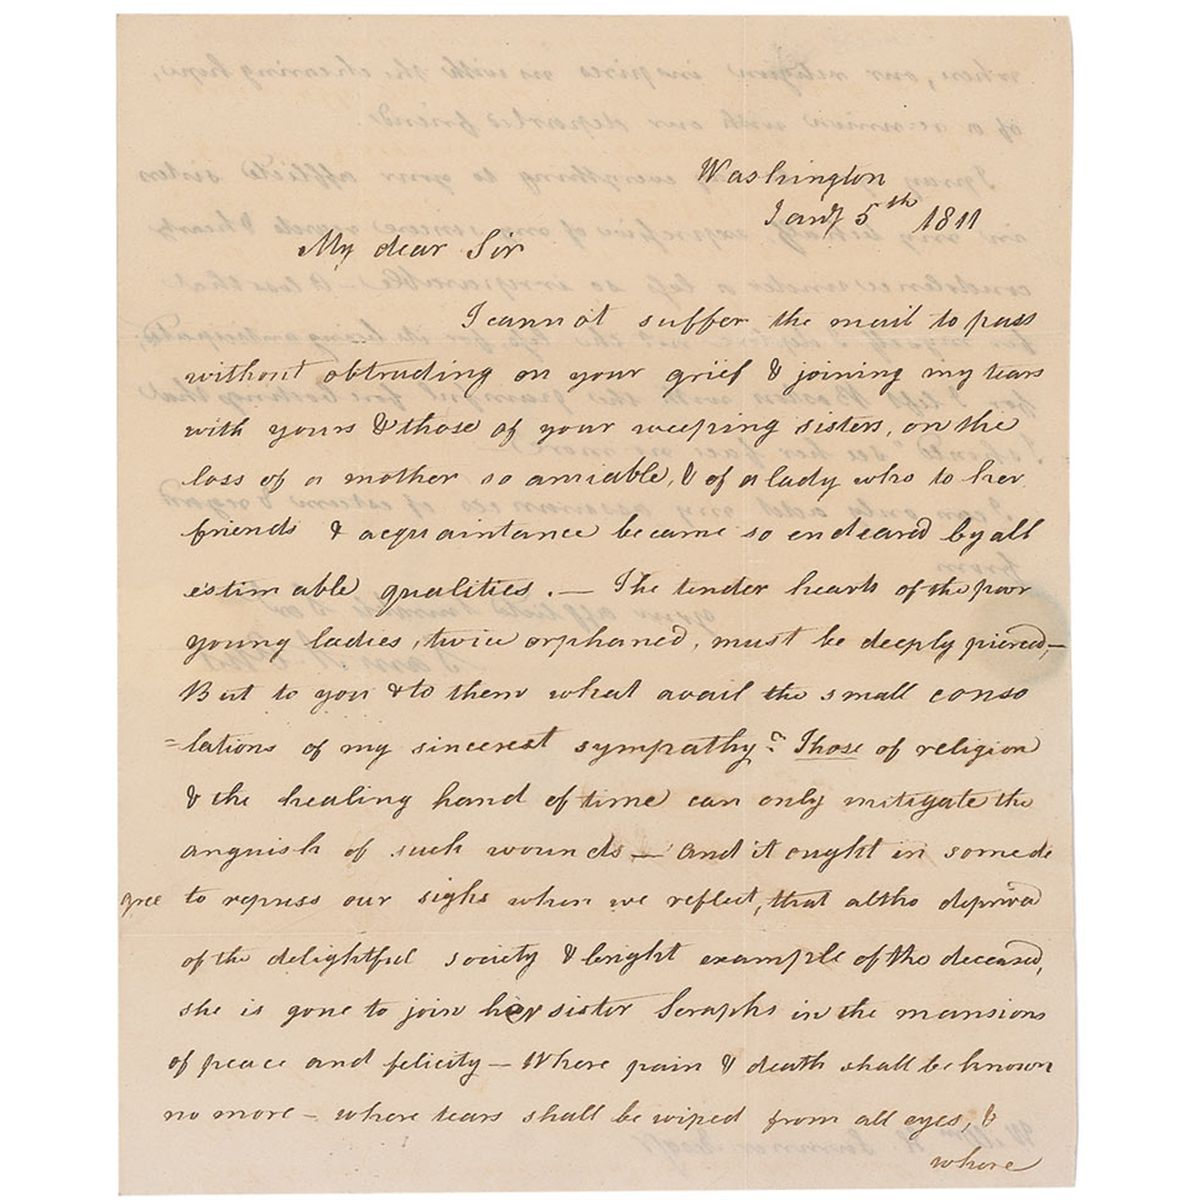 Washington
Jany 5th 1811
My dear Sir
I cannot suffer the mail to pass
without obtruding on your grief & joining my tears
with yours & those of your weeping sisters, on the
loss of a mother so amiable, & of a lady who to her
friends & acquaintance became so endeared by all
estimable qualities. — The tender hearts of the poor
young ladies, twice orphaned, must be deeply pierced, —
But to you & to them what avail the small conso
=lations of my sincerest sympathy? Those of religion
& the healing hand of time can only mitigate the
anguish of such wounds — and it ought in some de
gree to repress our sighs when we reflect, that altho deprived
of the delightful society & bright example of the deceased,
she is gone to join her sister Seraphs in the mansions
of peace and felicity — Where pain & death shall be known
no more — where tears shall be wiped from all eyes, &
where